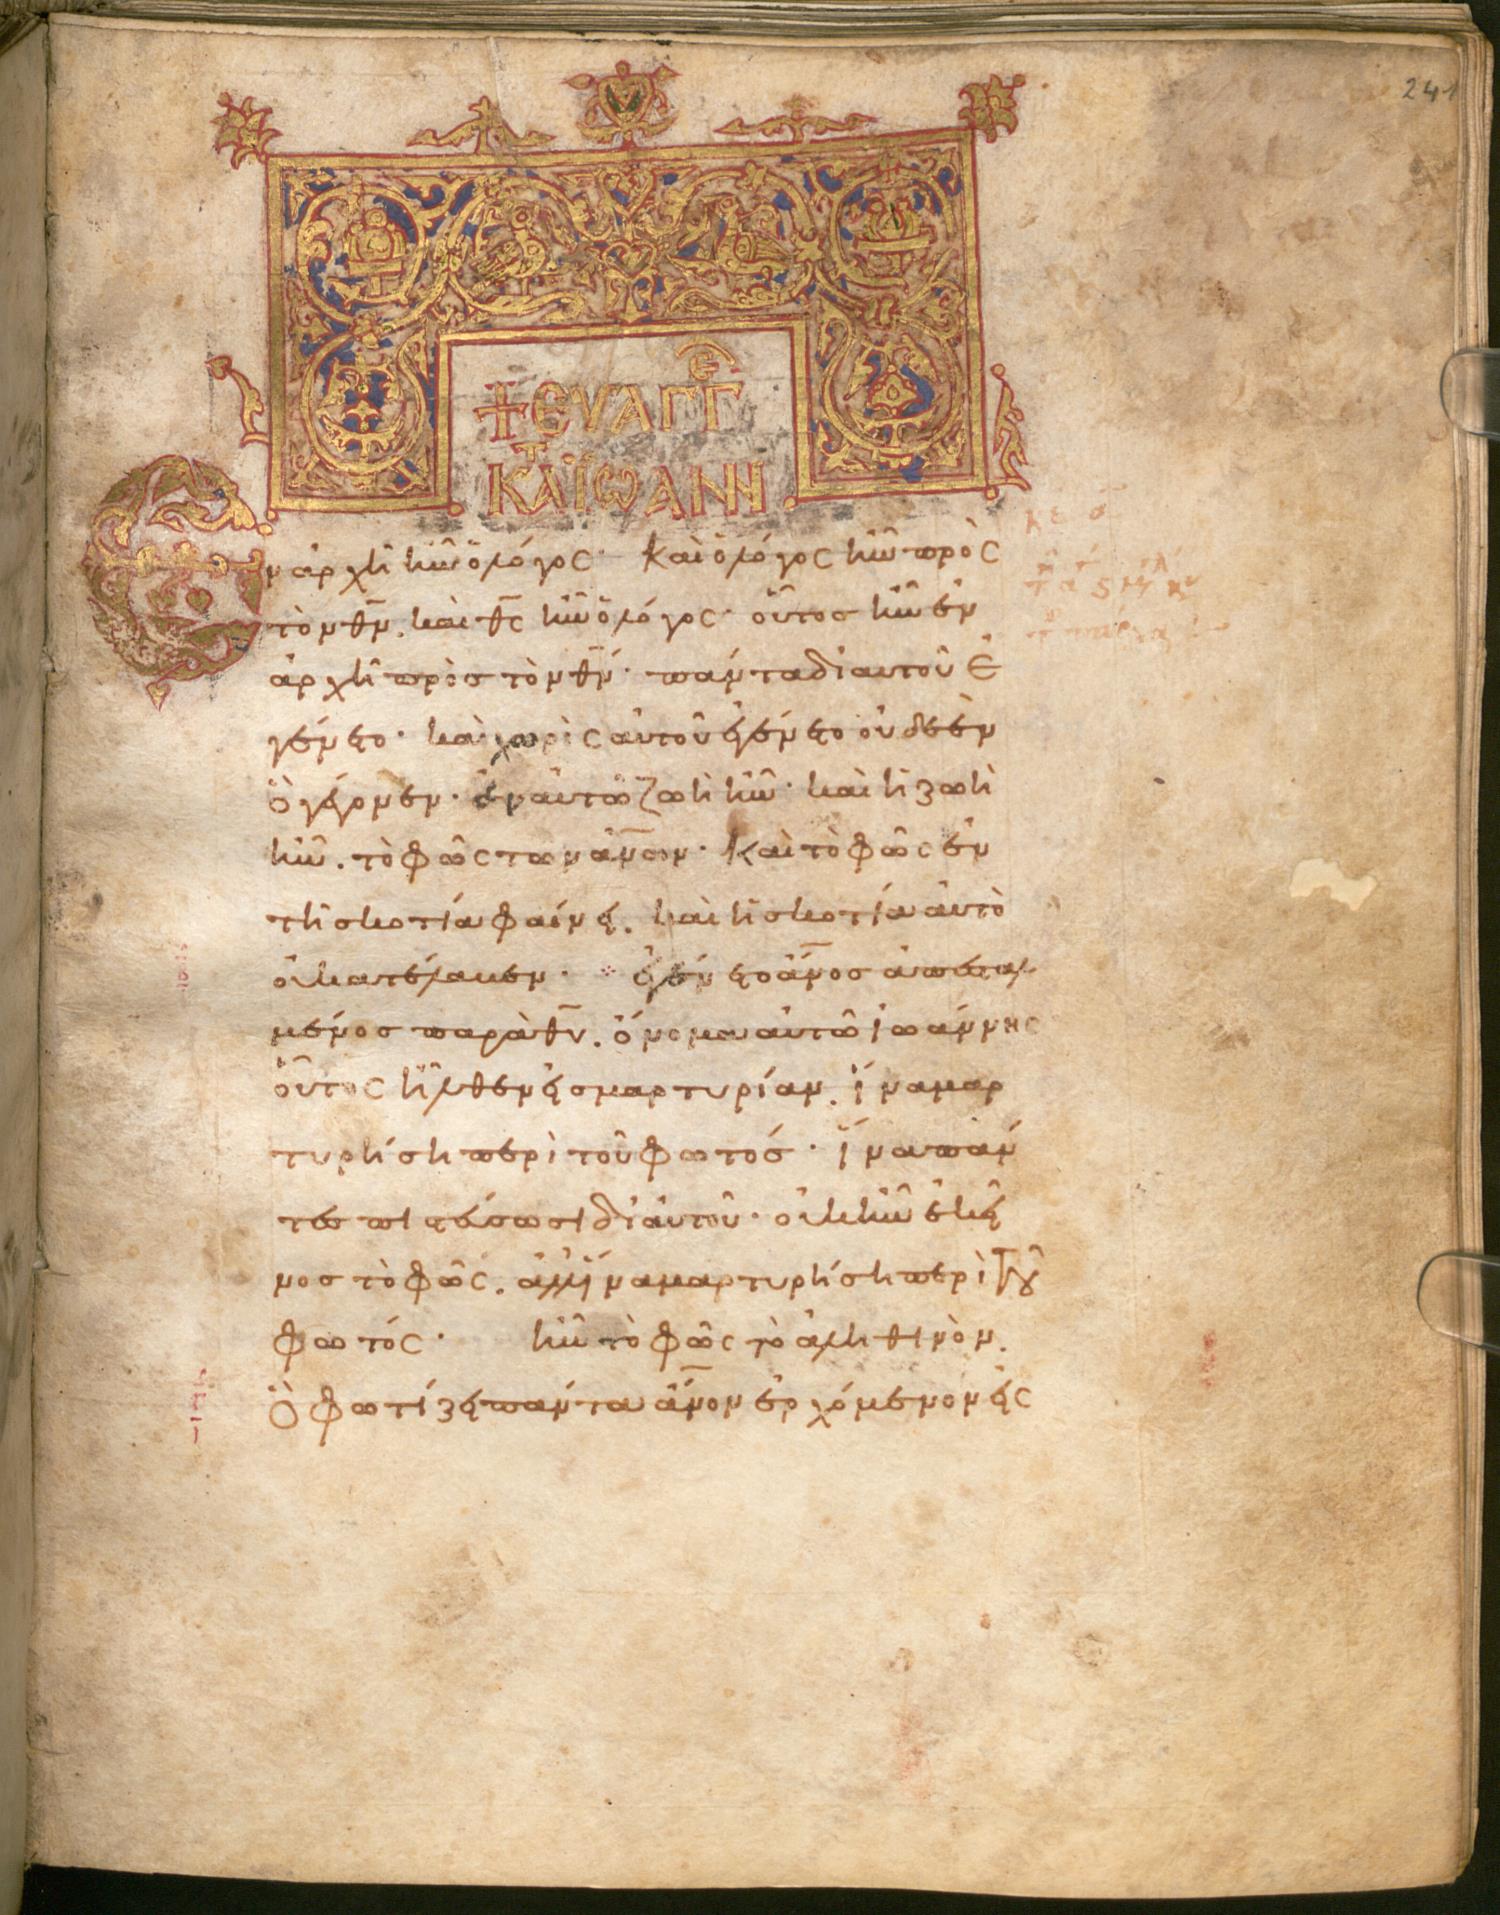 241
+ ευαγγε
κατ ιωανν
Εν ἀρχῆ ἦν ὁ λόγος· Και ὁ λόγος ἦν πρὸς
τὸν θν, και θς ἦν ὁ λόγος· οὗτος ἦν ἐν
ἀρχῆ πρὸς τὸν θν· πάντα δι αυτοῦ ἐ
γένετο· και χωρὶς αὐτοῦ ἐγένετο οὐδὲ ἓν
ὃ γέγονεν· ἐν αὐτῶ ζωὴ ἦν· και ἡ ζωὴ
ἦν. τὸ φῶς των ἀνων· Και τὸ φῶς ἐν
τῆ σκοτία φαίνει. και ἡ σκοτία αὐτὸ
οὐ κατέλαβεν· ἐγένετο ἄνος ἀπεσταλ
μένος παρὰ θυ. ὄνομα αυτῶ ἰωάννης
οὗτος ἦλθεν εἰς μαρτυρίαν. ἵνα μαρ
τυρήση περὶ τοῦ φωτός· ἵνα πάν
τες πιστεύσωσι δι αὐτοῦ· οὐκ ἦν ἐκεῖ
νος τὸ φῶς. ἀλλ ἵνα μαρτυρήση περὶ τοῦ
φωτός· ἦν τὸ φῶς τὸ ἀληθινὸν.
Ὃ φωτίζει πάντα ἄνον ἐρχόμενον εἰς